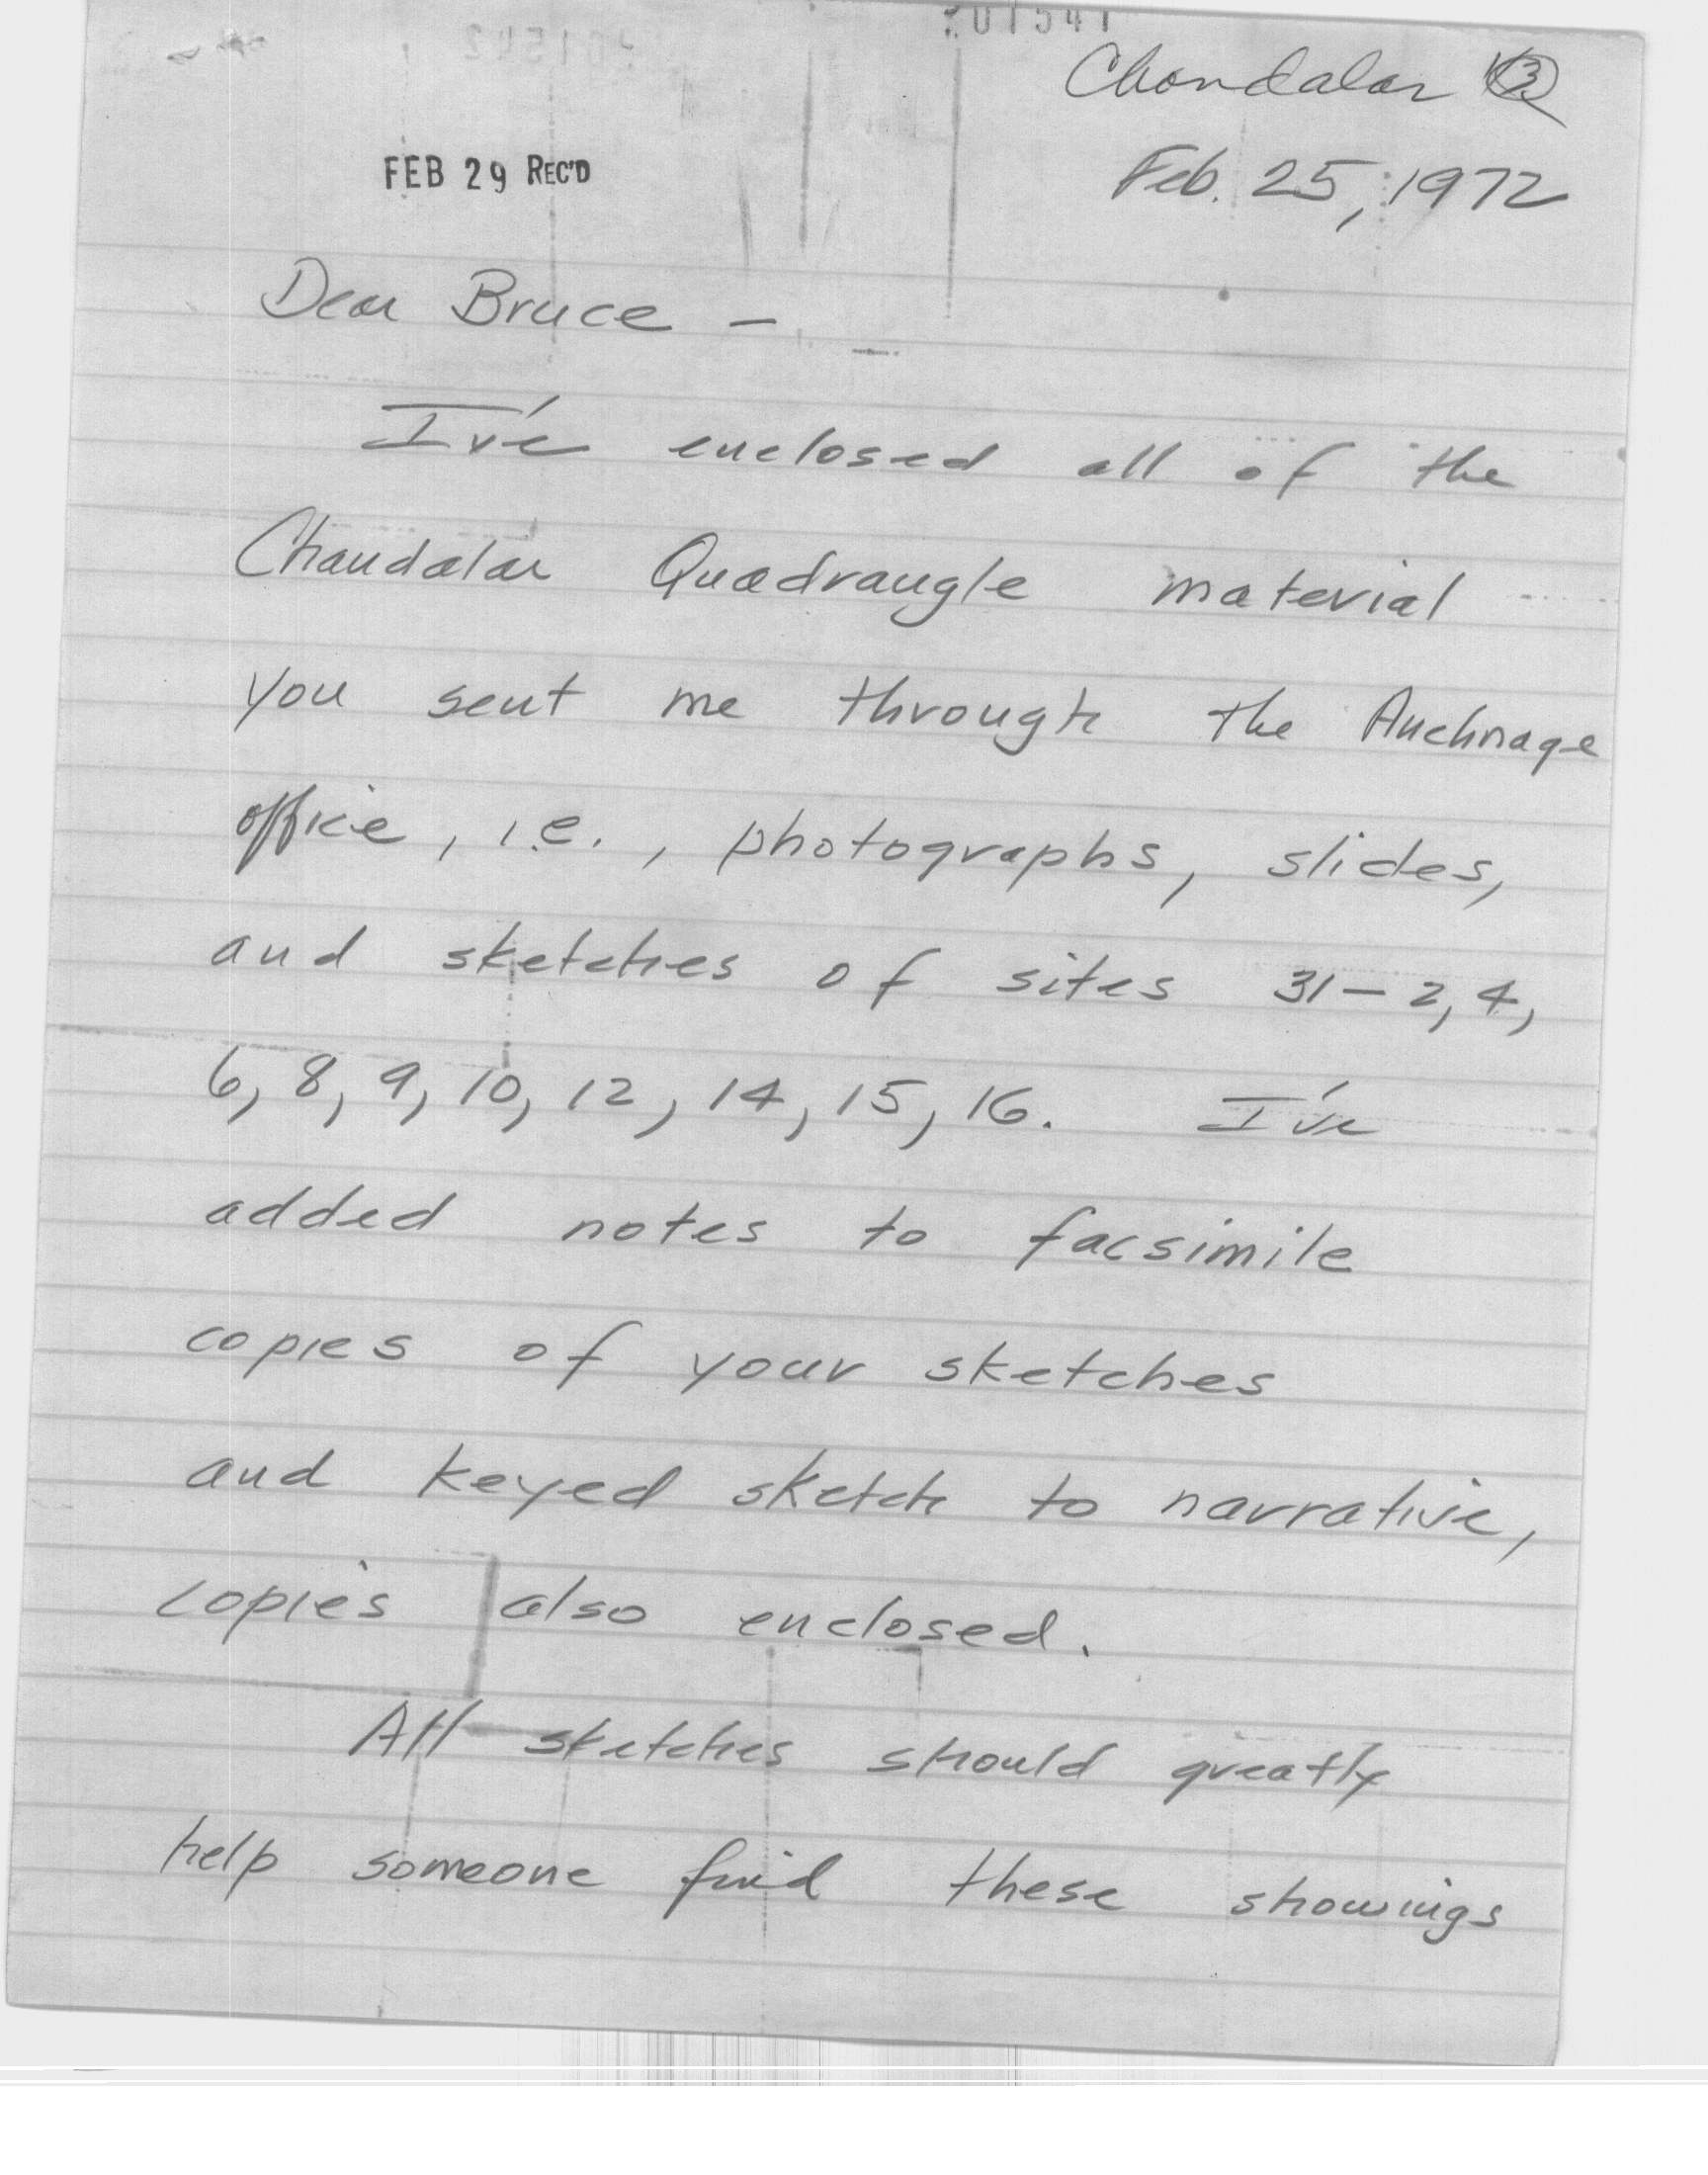 201541
Chandalar
FEB 29 REC'D
Feb. 25, 1972
Dear Bruce –
I've enclosed all of the
Chandalar Quadrangle material
you sent me through the Anchorage
office, i.e., photographs, slides,
and sketches of sites 31–2, 4,
6, 8, 9, 10, 12, 14, 15, 16. I've
added notes to facsimile
copies of your sketches
and keyed sketch to narrative,
copies also enclosed.
All sketches should greatly
help someone find these showings